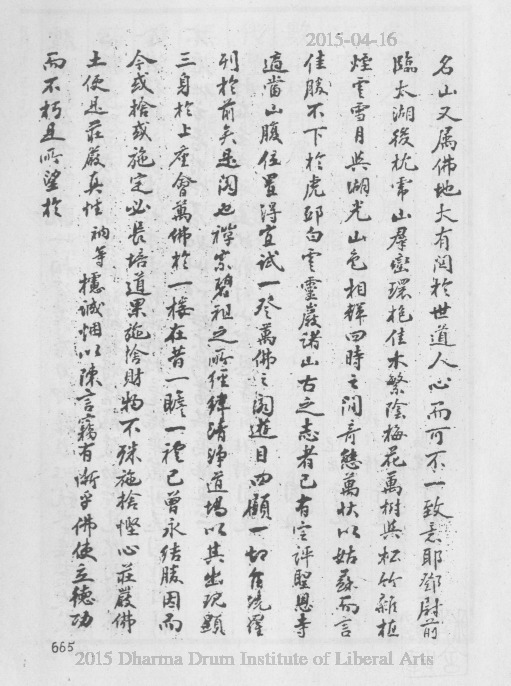 2015-04-16
名山又属佛地大有関於世道人心而可不一致意耶鄧尉前
臨太湖後枕帝山羣巒環抱佳木繁陰梅花萬樹與松竹雜植
煙雲雪月與湖光山色相輝四時之間奇態萬状以姑蘇而言
佳勝不下於虎邱白雲靈巖諸山古之志者已有定評聖恩寺
適當山腹位置得宜試一登萬佛之閣遊目四顧一切台境羅
列於前矣是閣也禅宗碧祖之所經緯清浄道場以其出現顕
三身於上座會萬佛於一樓在昔一瞻一禮已曾永結勝因而
今或捨或施定必長培道果施捨財物不殊施捨慳心莊嚴佛
土便是莊嚴真性衲等 誠烟以陳言竊有衝乎佛使立徳功
而不朽是所望於
665
2015 Dharma Drum Institute of Liberal Arts